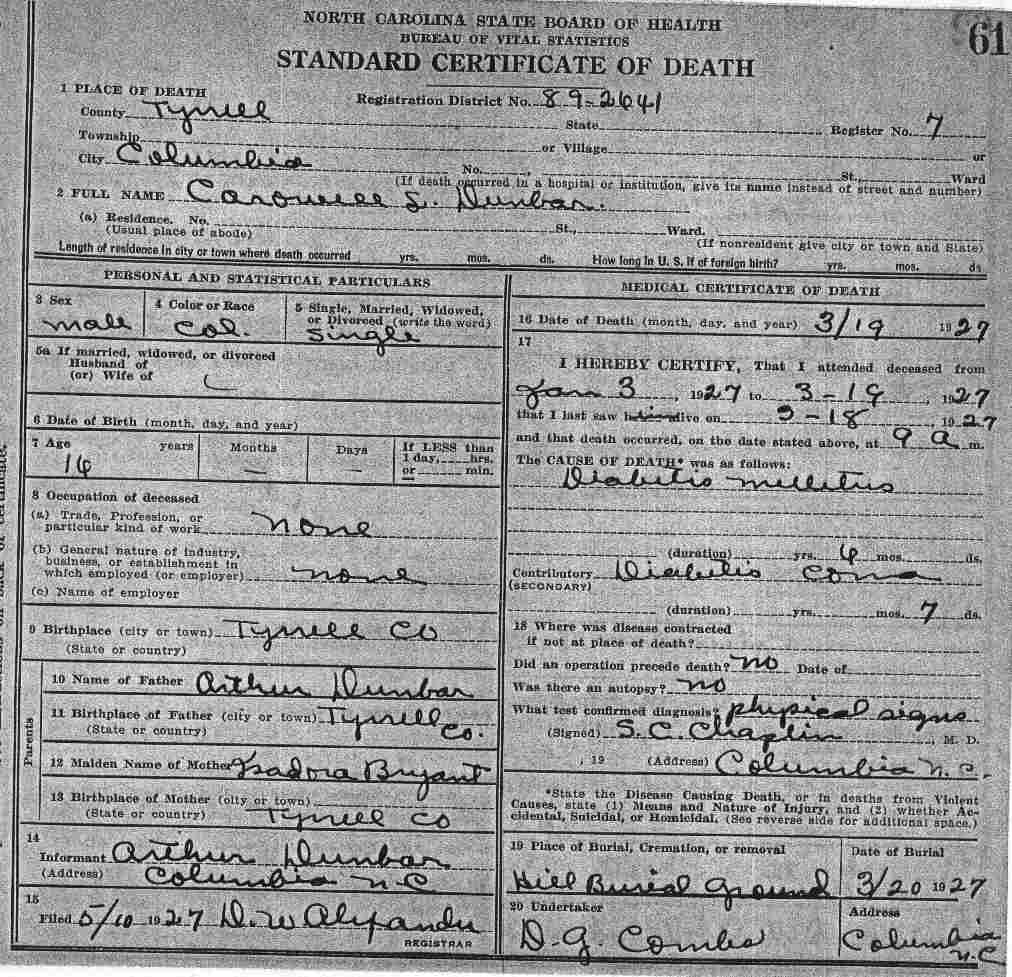 NORTH CAROLINA STATE BOARD OF HEALTH
BUREAU OF VITAL STATISTICS
STANDARD CERTIFICATE OF DEATH
61
1 PLACE OF DEATH
Registration District No. 89-2641
County Tyrrell State Register No. 7
Township or Village or
City Columbia No. St., Ward
(If death occurred in a hospital or institution, give its name instead of street and number)
2 FULL NAME L. Dunbar.
(a) Residence. No. St., Ward.
(Usual place of abode) (If nonresident give city or town and State)
Length of residence in city or town where death occurred yrs. mos. ds. How long in U. S. if of foreign birth? yrs. mos. ds.
PERSONAL AND STATISTICAL PARTICULARS
3 Sex
male
4 Color or Race
Col.
5 Single, Married, Widowed,
or Divorced (write the word)
Single
5a If married, widowed, or divorced
Husband of
(or) Wife of
6 Date of Birth (month, day, and year)
7 Age years Months Days If LESS than
1 day, hrs.
or min.
— —
8 Occupation of deceased
(a) Trade, Profession, or
particular kind of work none
(b) General nature of industry,
business, or establishment in
which employed (or employer) none
(c) Name of employer
9 Birthplace (city or town) Tyrrell Co
(State or country)
Parents
10 Name of Father Arthur Dunbar
11 Birthplace of Father (city or town) Tyrrell
(State or country) Co.
12 Maiden Name of Mother Isadora Bryant
13 Birthplace of Mother (city or town)
(State or country) Tyrrell Co
14
Informant Arthur Dunbar
(Address) Columbia N C
15
Filed 5/10 1927 D. W
REGISTRAR
MEDICAL CERTIFICATE OF DEATH
16 Date of Death (month, day, and year) 3/19 1927
17
I HEREBY CERTIFY, That I attended deceased from
Jan 3, 1927 to 3-19, 1927
that I last saw him alive on 3-18, 1927
and that death occurred, on the date stated above, at 9 a m.
The CAUSE OF DEATH* was as follows:
Diabetis mellitus
(duration) yrs. mos. ds.
Contributory Diabetis Coma
(SECONDARY)
(duration) yrs. mos. 7 ds.
18 Where was disease contracted
if not at place of death?
Did an operation precede death? no Date of
Was there an autopsy? no
What test confirmed diagnosis? physical signs
(Signed) S. C. Chaplin, M. D.
, 19 (Address) Columbia N.C.
*State the Disease Causing Death, or in deaths from Violent
Causes, state (1) Means and Nature of Injury, and (2) whether Ac-
cidental, Suicidal, or Homicidal. (See reverse side for additional space.)
19 Place of Burial, Cremation, or removal
Hill Burial Ground
Date of Burial
3/20 1927
20 Undertaker
D. G. Combs
Address
Columbia
N.C